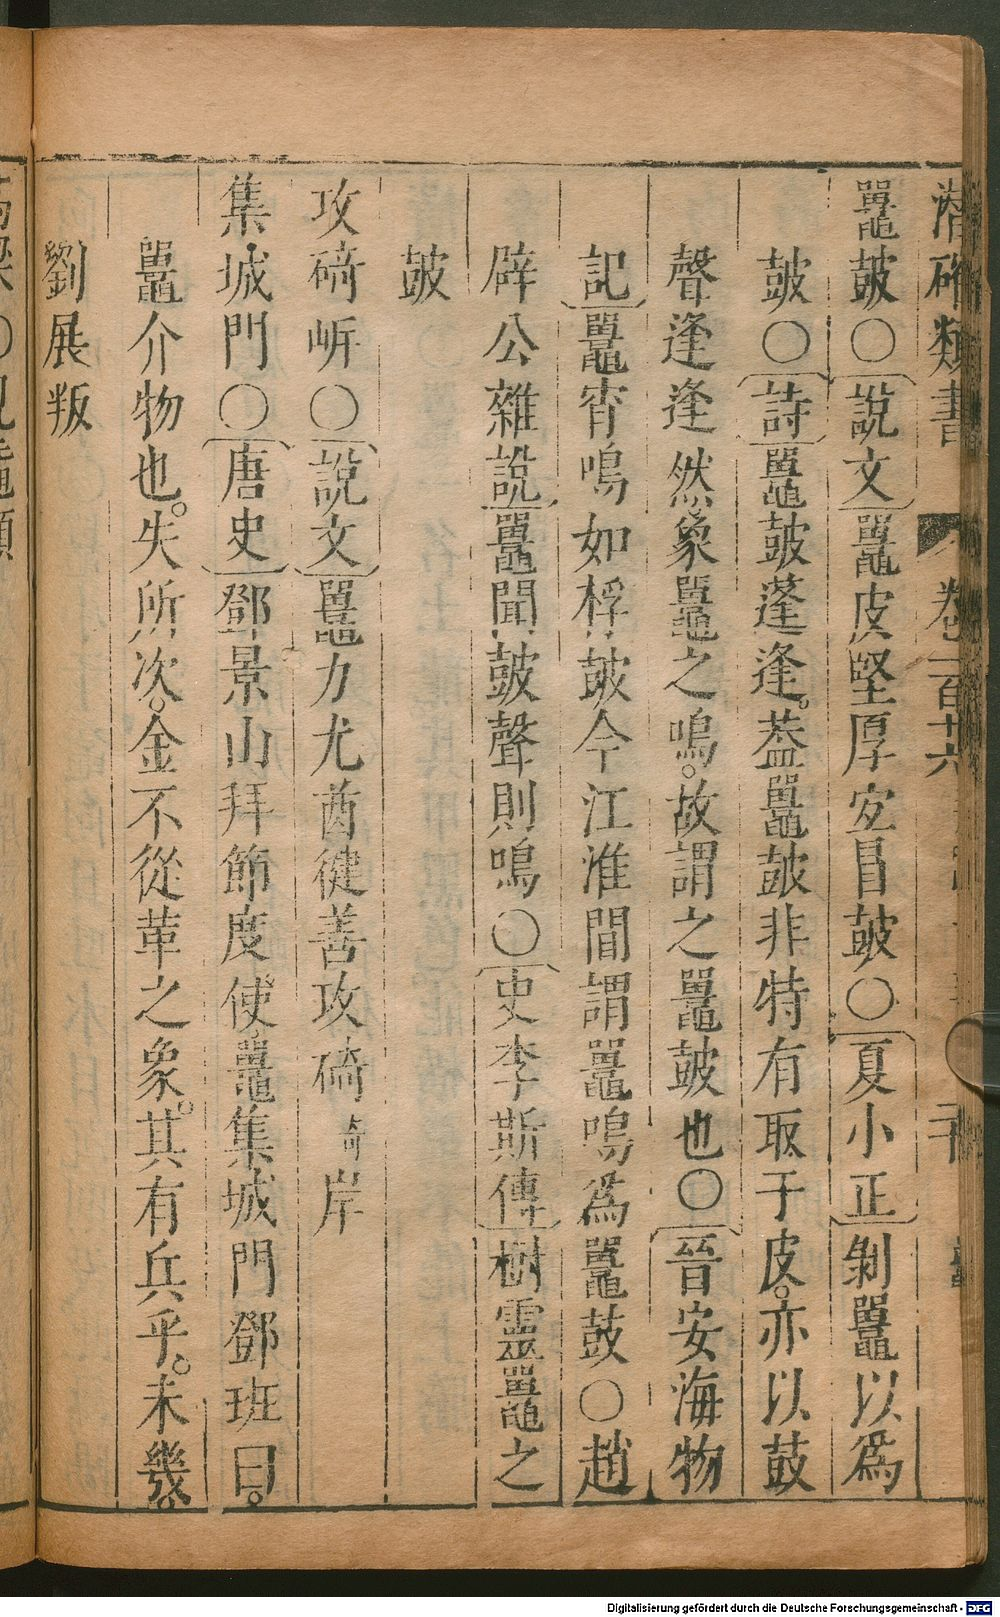 潛確類書 卷一百十六 二十
鼉皷〇說文鼉皮堅厚宐冒皷〇夏小正剝鼉以爲
皷〇詩鼉皷逢逢。葢鼉皷非特有取于皮。亦以鼓
聲逢逢然象鼉之鳴。故謂之鼉皷也〇晉安海物
記鼉宵鳴如桴皷今江淮間謂鼉鳴爲鼉鼓〇趙
辟公雜說鼉聞皷聲則鳴〇史李斯傳樹靈鼉之
皷
攻碕㟁〇說文鼉力尤酋健善攻碕奇岸
集城門〇唐史鄧景山拜節度使鼉集城門鄧班曰。
鼉介物也。失所次。金不從革之象。其有兵乎。未幾。
劉展叛
Digitalisierung gefördert durch die Deutsche Forschungsgemeinschaft - DFG